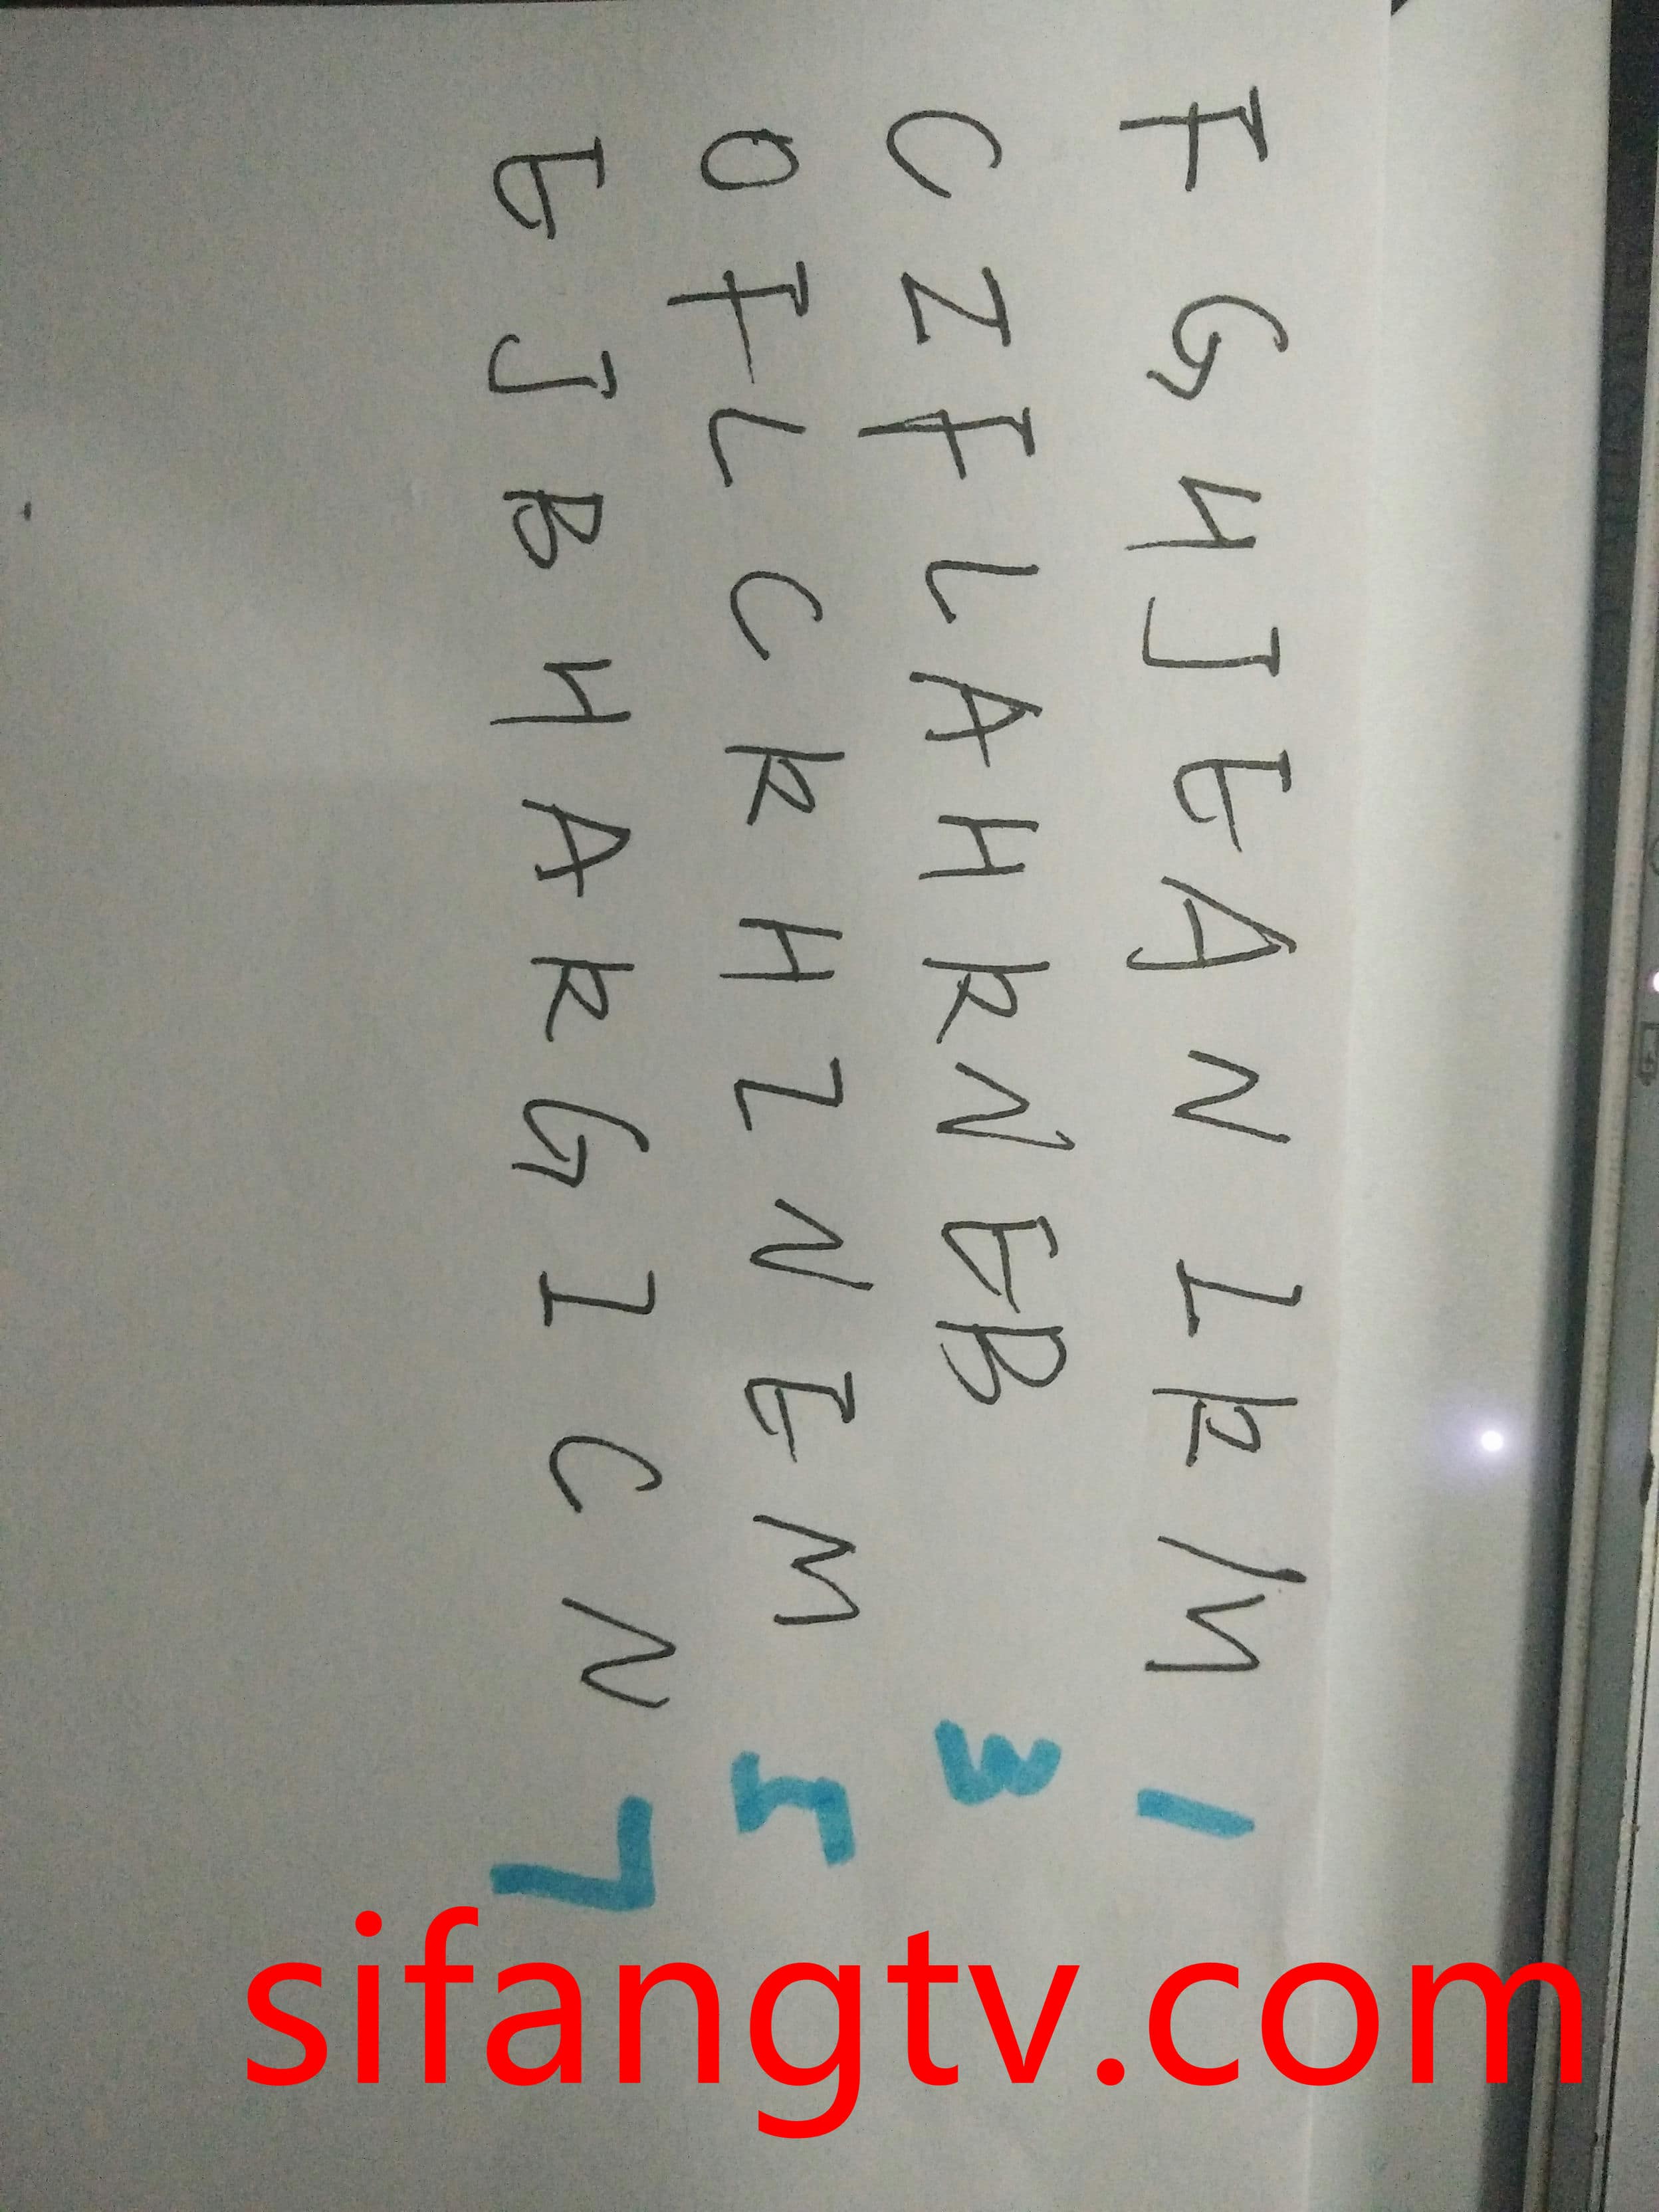 F G H J E A N I K M 1
C I F L A H K N E B 3
O F L C K H I N E M 5
E J B H A K G I C N 7
sifangtv.com